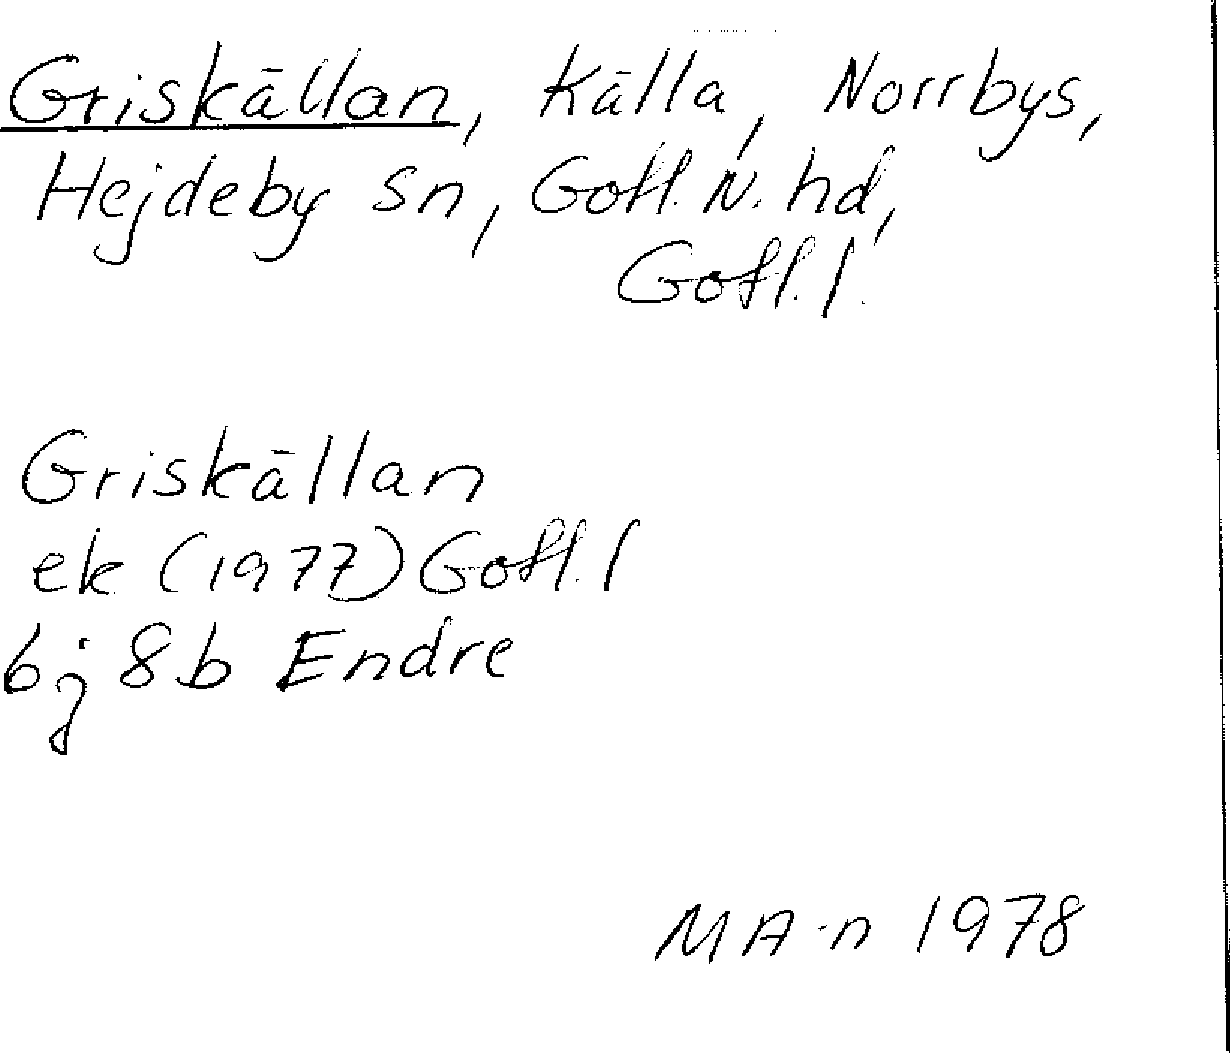 Griskällan, källa, Norrbys,
Hejdeby sn, Gotl. N. hd,
Gotl. l.
Griskällan
ek (1977) Gotl. l
6j 8b Endre
MA-n 1978